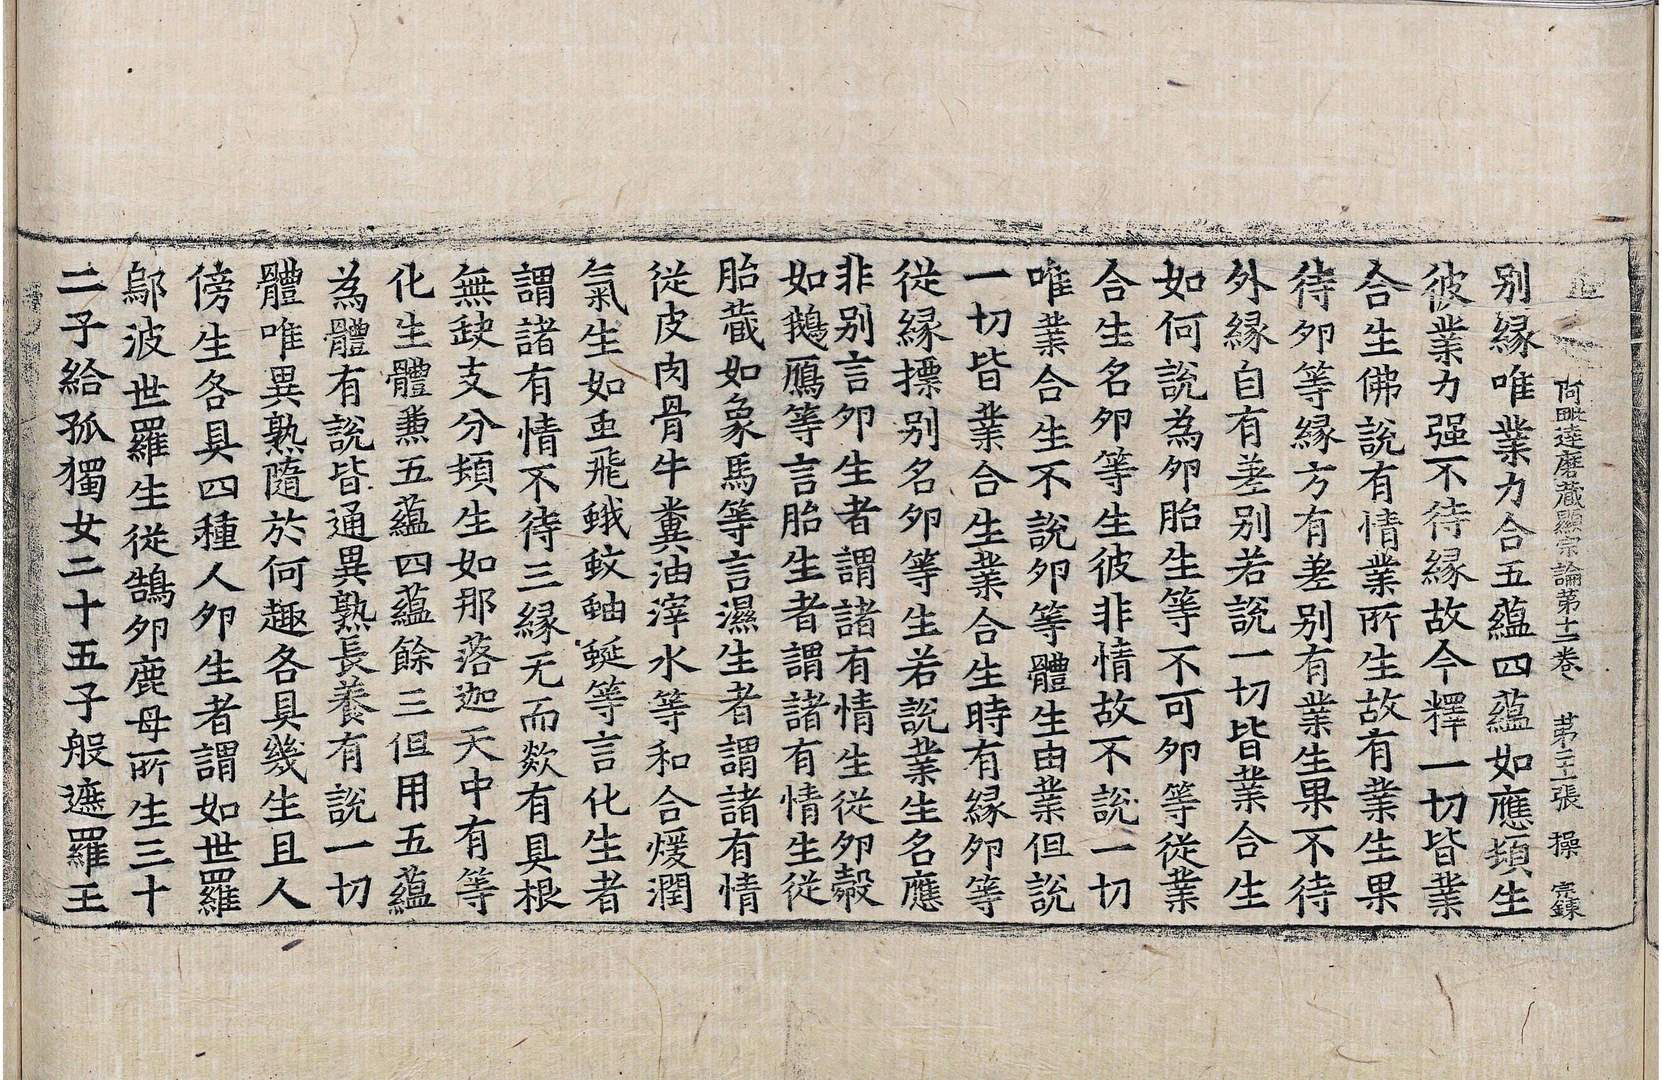 阿毗達磨藏顯宗論第十二卷 第二十張 操 宗鍊
别緣唯業力合五蘊四蘊如應類生
彼業力强不待緣故今釋一切皆業
合生佛說有情業所生故有業生果
待卵等緣方有差别有業生果不待
外緣自有差别若說一切皆業合生
如何說為卵胎生等不可卵等從業
合生名卵等生彼非情故不說一切
唯業合生不說卵等體生由業但說
一切皆業合生業合生時有緣卵等
從緣摽别名卵等生若說業生名應
非别言卵生者謂諸有情生從卵㲉
如鵝鴈等言胎生者謂諸有情生從
胎藏如象馬等言濕生者謂諸有情
從皮肉骨牛糞油滓水等和合煖潤
氣生如䖝飛蛾蚊蚰蜒等言化生者
謂諸有情不待三緣无而欻有具根
無缺支分頓生如那落迦天中有等
化生體兼五蘊四蘊餘三但用五蘊
為體有說皆通異熟長養有說一切
體唯異熟隨於何趣各具幾生且人
傍生各具四種人卵生者謂如世羅
鄔波世羅生從鵠卵鹿母所生三十
二子給孤獨女二十五子般遮羅王